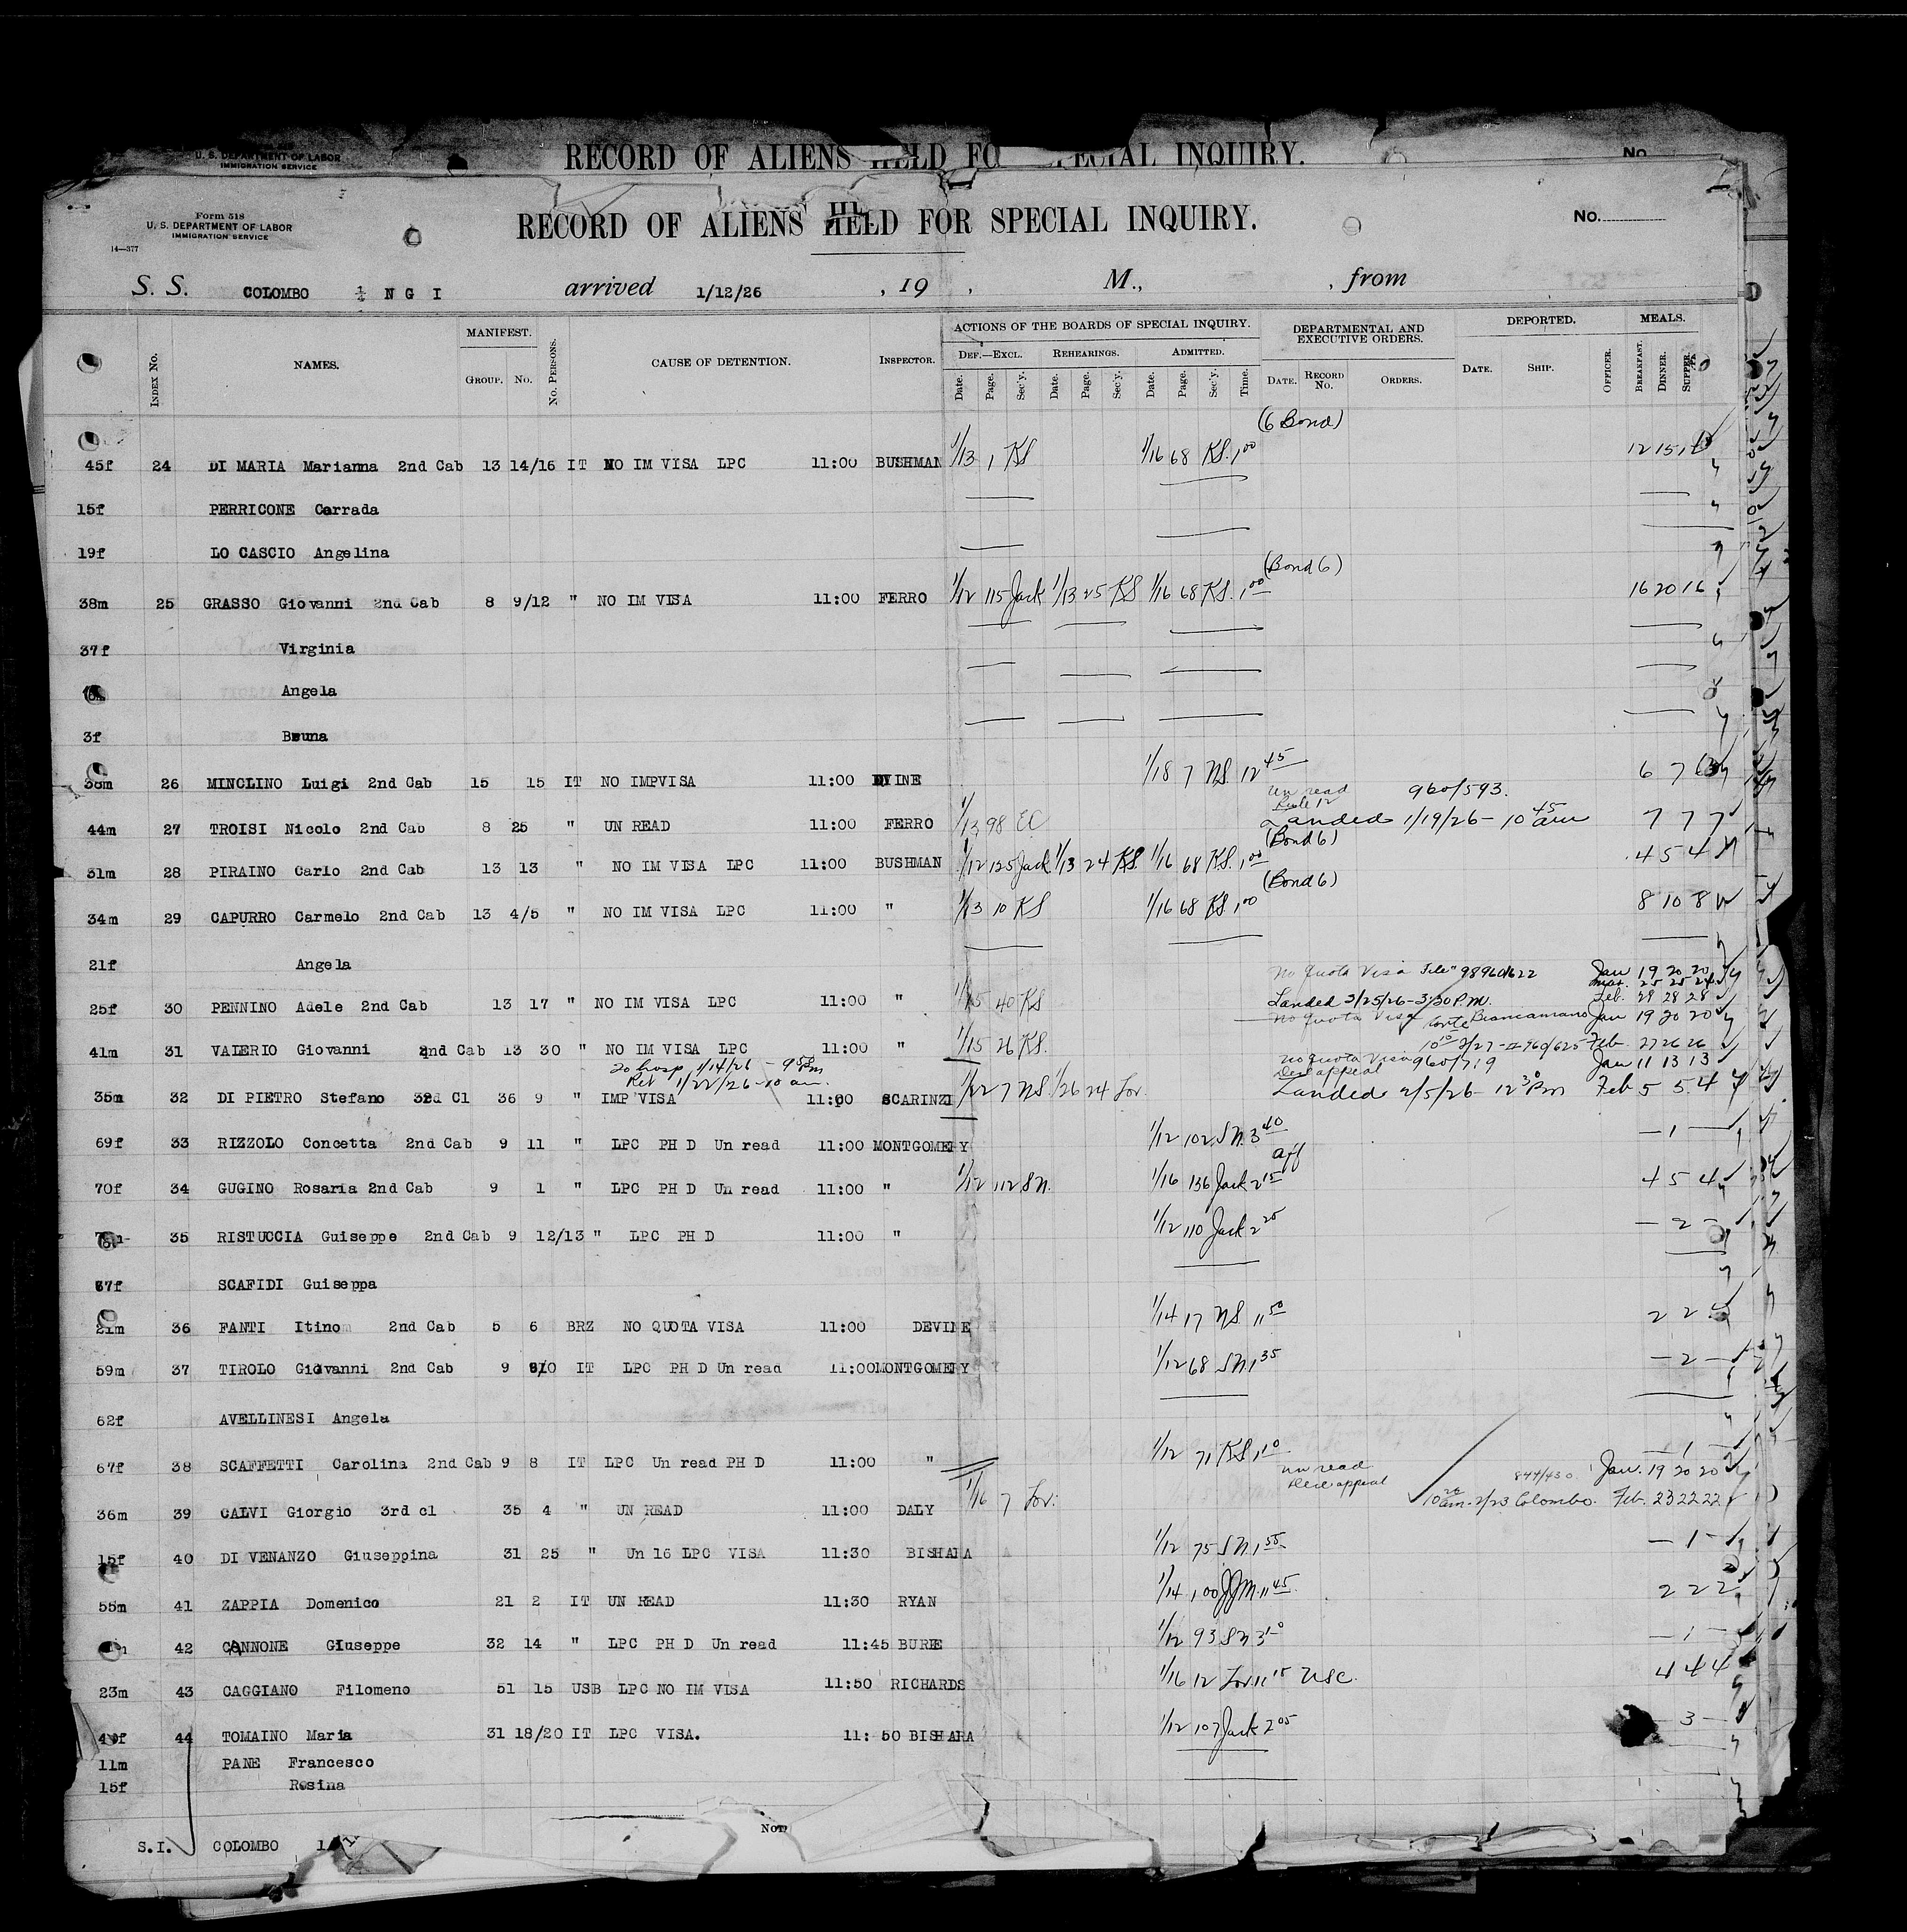 U. S. DEPARTMENT OF LABOR
IMMIGRATION SERVICE
RECORD OF ALIENS HELD FO SPECIAL INQUIRY.
No.
Form 518
U. S. DEPARTMENT OF LABOR
IMMIGRATION SERVICE
14—377
RECORD OF ALIENS HELD FOR SPECIAL INQUIRY.
No.
S. S. COLOMBO N G I arrived 1/12/26 , 19 , M., , from
MANIFEST. ACTIONS OF THE BOARDS OF SPECIAL INQUIRY. DEPARTMENTAL AND EXECUTIVE ORDERS. DEPORTED. MEALS.
Index No. NAMES. Group. No. No. Persons. CAUSE OF DETENTION. Inspector. Def.—Excl. Rehearings. Admitted.
Date. Page. Sec'y. Date. Page. Sec'y. Date. Page. Sec'y. Time. Date. Record No. Orders. Date. Ship. Officer. Breakfast. Dinner. Supper.
(6 Bond)
45f 24 DI MARIA Marianna 2nd Cab 13 14/16 IT NO IM VISA LPC 11:00 BUSHMAN 1/13 1 KS 1/16 68 KS. 1 00 12 15
15f PERRICONE Corrada
19f LO CASCIO Angelina
(Bond 6)
38m 25 GRASSO Giovanni 2nd Cab 8 9/12 " NO IM VISA 11:00 FERRO 1/12 115 Jack 1/13 25 KS 1/16 68 KS. 1 00 16 20 16
37f Virginia
Angela
3f Bruna
38m 26 MINCLINO Luigi 2nd Cab 15 15 IT NO IMPVISA 11:00 DVINE 1/18 7 NS 12 45 6 7 6
un read 960/593.
Rule 12
44m 27 TROISI Nicolo 2nd Cab 8 25 " UN READ 11:00 FERRO 1/13 98 EC Landed 1/19/26 - 10 45 am 7 7 7
(Bond 6)
31m 28 PIRAINO Carlo 2nd Cab 13 13 " NO IM VISA LPC 11:00 BUSHMAN 1/12 125 Jack 1/13 24 KS. 1/16 68 KS. 1 00 4 5 4
(Bond 6)
34m 29 CAPURRO Carmelo 2nd Cab 13 4/5 " NO IM VISA LPC 11:00 " 1/13 10 KS 1/16 68 KS 1 00 8 10 8
21f Angela
No Quota Visa File 98960/622 Jan 19 20 20
Mar. 25 25 24
25f 30 PENNINO Adele 2nd Cab 13 17 " NO IM VISA LPC 11:00 " 1/15 40 KS Landed 3/25/26 - 3:30 P.M. Feb. 29 28 28
No Quota Visa Conte Biancamano Jan 19 20 20
41m 31 VALERIO Giovanni 2nd Cab 13 30 " NO IM VISA LPC 11:00 " 1/15 26 KS. 2/27 960/625 Feb. 27 26 26
To hosp 1/14/26 - 9 Pm No Quota Visa 960/719 Jan 11 13 13
Ret 1/22/26 - 10 am. appeal
35m 32 DI PIETRO Stefano 3rd Cl 36 9 " IMP VISA 11:00 SCARINZI 1/22 7 NS 1/26 24 Lov. Landed 2/5/26 - 12 30 Pm Feb 5 5 4
69f 33 RIZZOLO Concetta 2nd Cab 9 11 " LPC PH D Un read 11:00 MONTGOMERY 1/12 102 SN. 3 40 — 1 —
aff
70f 34 GUGINO Rosaria 2nd Cab 9 1 " LPC PH D Un read 11:00 " 1/12 112 SN. 1/16 136 Jack 2 15 4 5 4
35 RISTUCCIA Guiseppe 2nd Cab 9 12/13 " LPC PH D 11:00 " 1/12 110 Jack 2 25 — 2 —
67f SCAFIDI Guiseppa
21m 36 FANTI Itino 2nd Cab 5 6 BRZ NO QUOTA VISA 11:00 DEVINE 1/14 17 NS 11 50 2 2
59m 37 TIROLO Giovanni 2nd Cab 9 9/10 IT LPC PH D Un read 11:00 MONTGOMERY 1/12 68 SN 1 35 — 2 —
62f AVELLINESI Angela
67f 38 SCAFFETTI Carolina 2nd Cab 9 8 IT LPC Un read PH D 11:00 " 1/12 71 KS 1 10 — 1 —
un read 844/430 Jan. 19 20 20
appeal
36m 39 CALVI Giorgio 3rd cl 35 4 " UN READ 11:00 DALY 1/16 7 Lov. 2/23 Colombo. Feb. 23 22 22
15f 40 DI VENANZO Giuseppina 31 25 " Un 16 LPC VISA 11:30 BISHARA 1/12 75 SN 1 55 — 1 —
55m 41 ZAPPIA Domenico 21 2 IT UN READ 11:30 RYAN 1/14 100 JJM. 11 45 2 2 2
42 CANNONE Giuseppe 32 14 " LPC PH D Un read 11:45 BURKE 1/12 93 SN 3 — 1 —
23m 43 CAGGIANO Filomeno 51 15 USB LPC NO IM VISA 11:50 RICHARDS 1/16 12 Lov. 11 15 USC. 4 4 4
44 TOMAINO Maria 31 18/20 IT LPC VISA. 11: 50 BISHARA 1/12 107 Jack 2 05 3 —
11m PANE Francesco
15f Rosina
S.I. COLOMBO